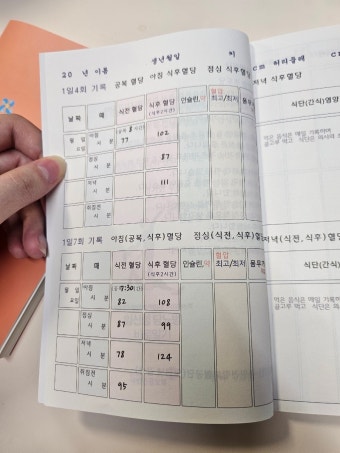 20 년 이름 생년월일 키 cm 허리둘레
1일4회 기록 공복 혈당 아침 식후혈당 점심 식후혈당 저녁 식후혈당
날짜 때 식전 혈당 식후 혈당 인슐린,약 혈압 몸무게 식단(간식)영양
(식후2시간) 최고/최저
월 일 아침 (공복 8시간) 102
요일 시 분 77
점심 87
시 분
저녁 111
시 분
취침전
시 분
먹은 음식은 매일 기록하며
골고루 먹고 식단은 의사와
1일7회 기록 아침(공복,식후)혈당 점심(식전,식후)혈당 저녁(식전,식후)혈당
날짜 때 식전 혈당 식후 혈당 인슐린,약 혈압 몸무게 식단(간식)
(식후2시간) 최고/최저
월 일 아침 7:30
요일 시 분 82 108
점심 87 99
시 분
저녁 78 124
시 분
취침전 95
시 분
먹은 음식은 매일 기록하며
골고루 먹고 식단은 의사